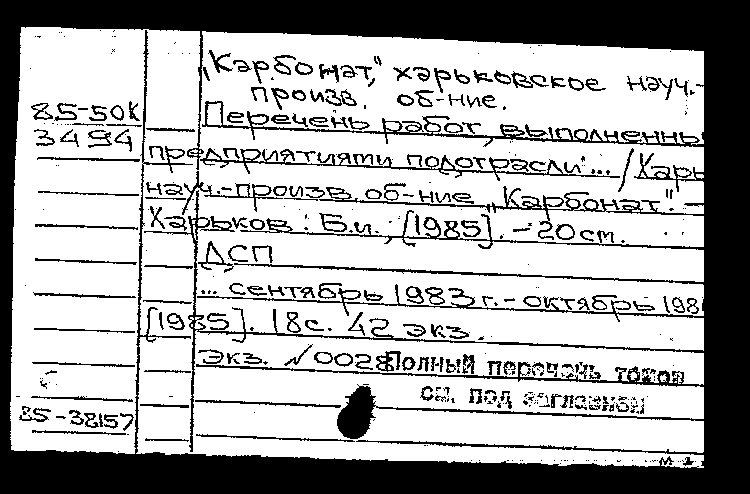 „Карбонат“, харьковское науч.-
произв. об-ние.
85-50К Перечень работ, выполненны
3494
предприятиями подотрасли... / Харь
науч.-произв. об-ние „Карбонат“. —
Харьков : Б.и., [1985]. - 20 см.
ДСП
... сентябрь 1983 г. - октябрь 198
[1985]. 18 с. 42 экз.
Экз. №0028 Полный перечень томов
см. под заглавной
85-38157